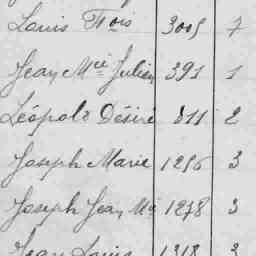 Louis Fçois 3005 7
Jean Mie Julien 391 1
Léopold Désiré 811 2
Joseph Marie 1256 3
Joseph Jean Mie 1278 3
Jean Louis 1318 3